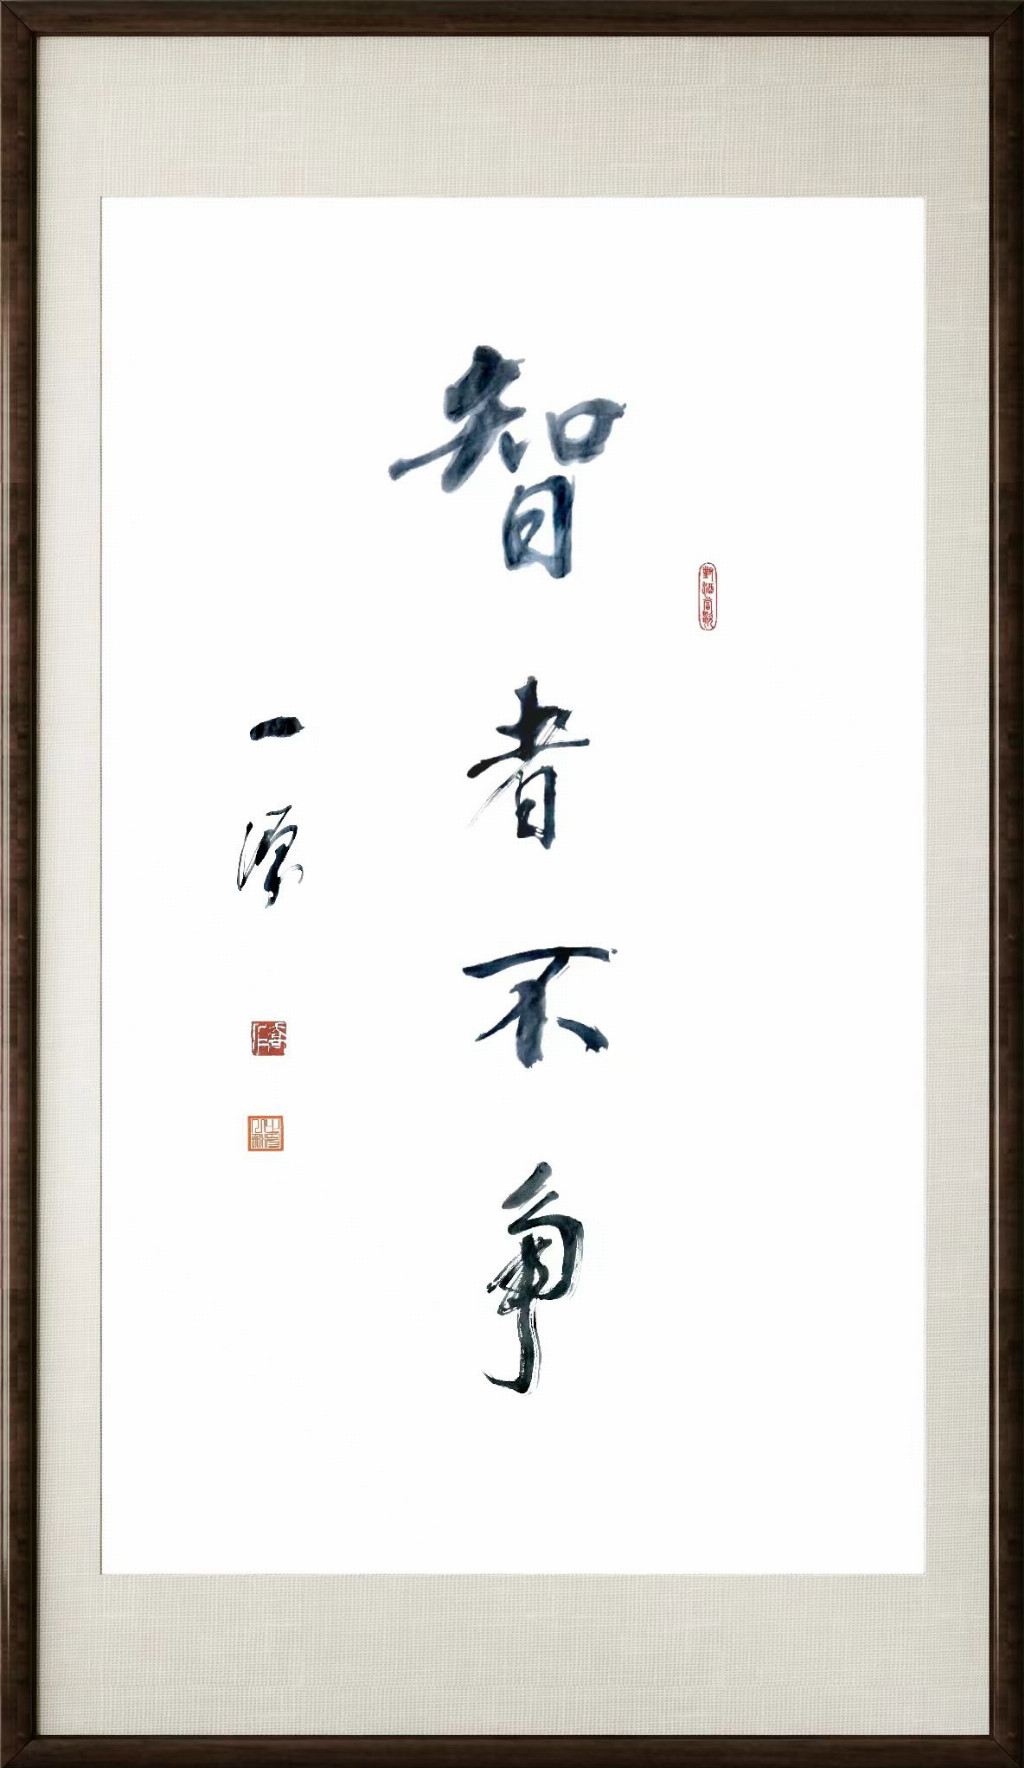 智者不争
一源